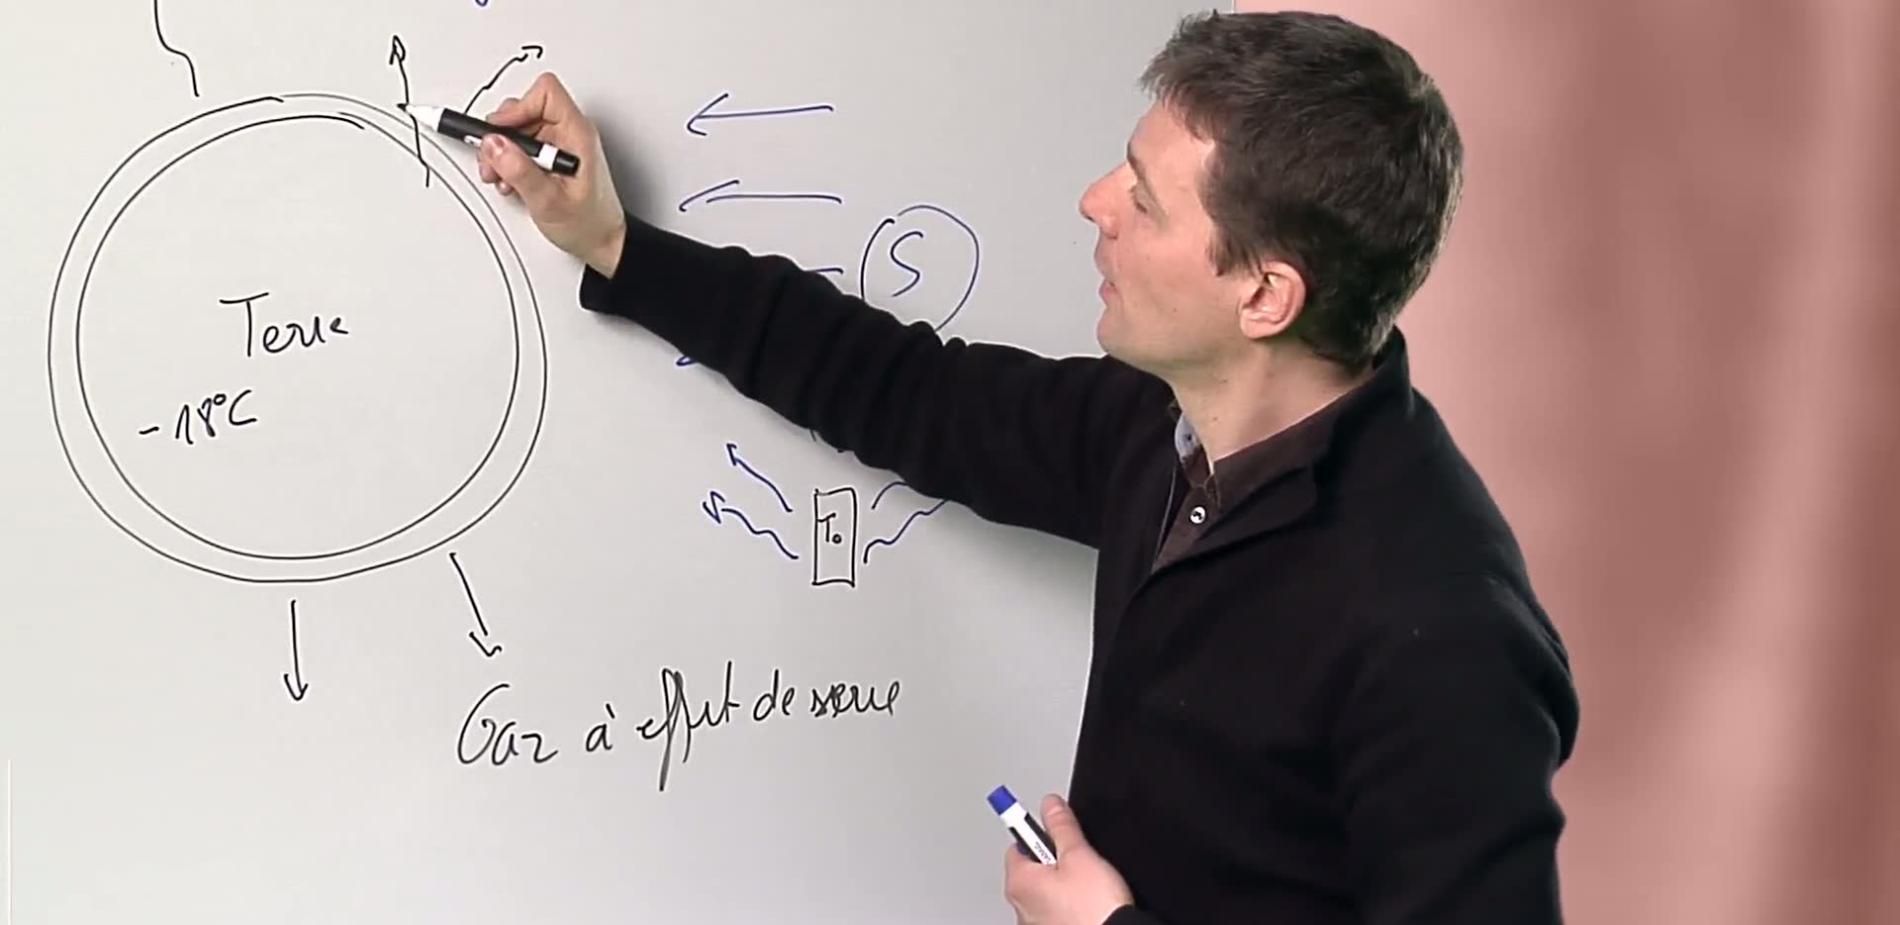 S
Terre
-18°C
T₀
Gaz à effet de serre